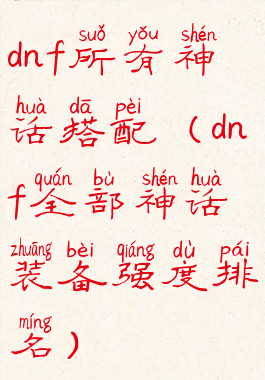 suǒ yǒu shén
dnf所有神
huà dā pèi
话搭配（dn
quán bù shén huà
f全部神话
zhuāng bèi qiáng dù pái
装备强度排
míng
名）